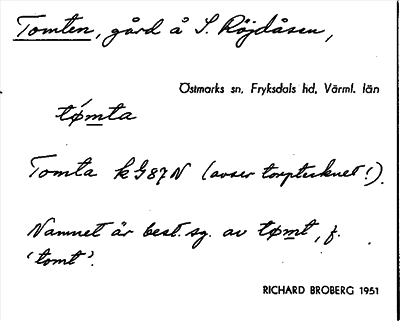 Tomten, gård å S. Röjdåsen,
Östmarks sn, Fryksdals hd, Värml. län
tǿmta
Tomta kG87N (avser torptecknet!).
Namnet är best. sg. av tømt, f.
'tomt'.
RICHARD BROBERG 1951